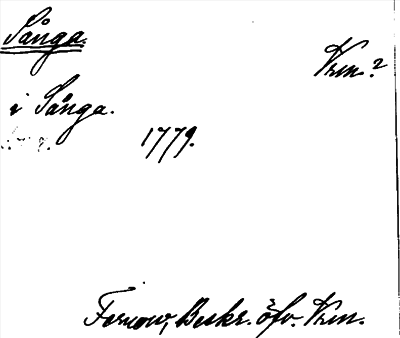 Sånga.
Vrm.?
i Sånga.
1779.
Fernow, Beskr. öfv. Vrm.